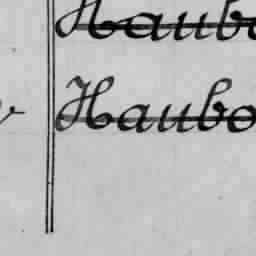 Haubo
Haubo